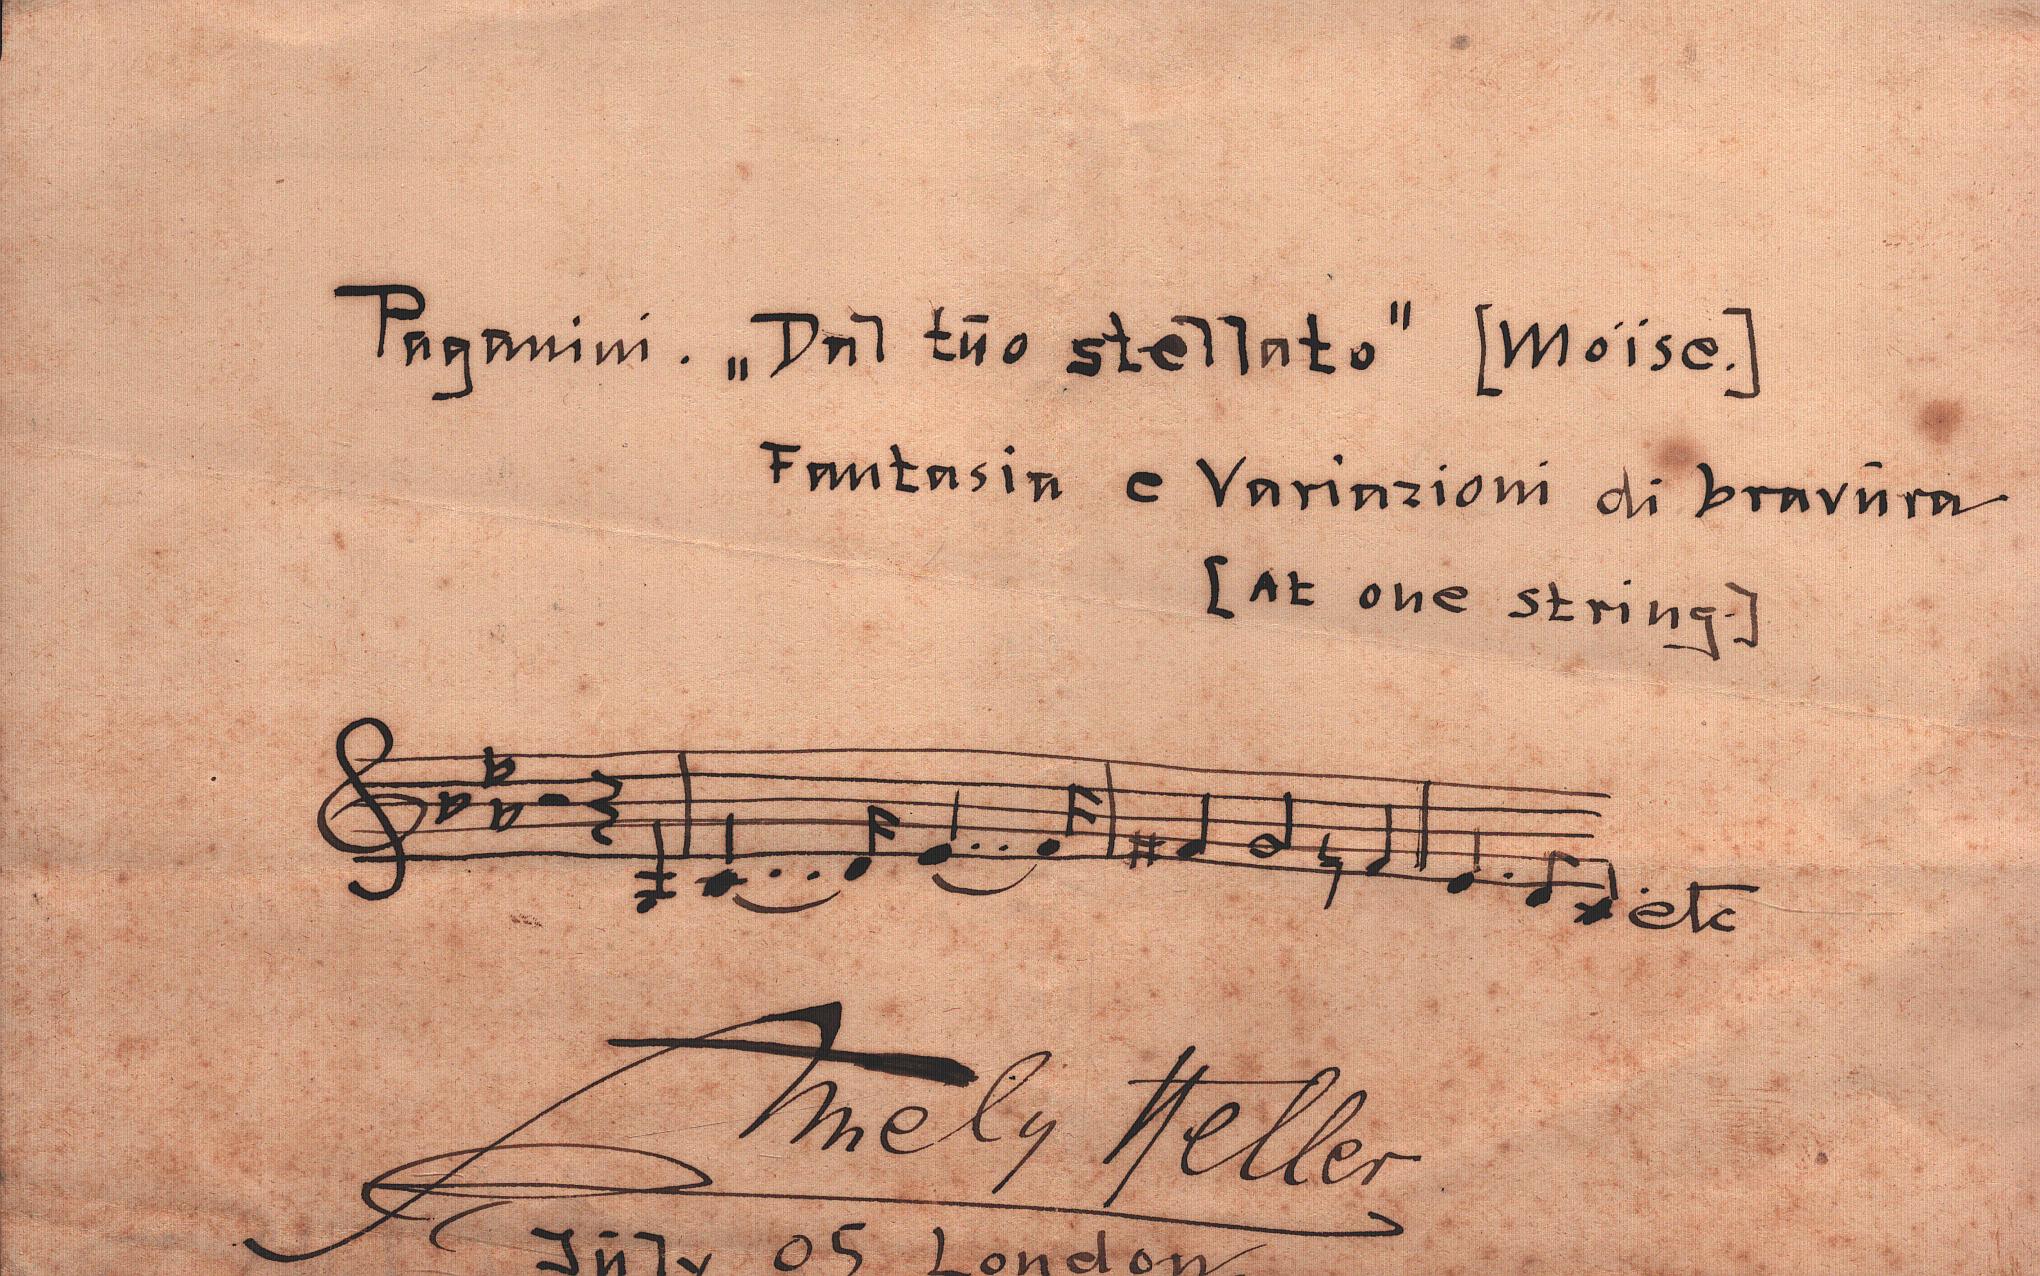 Paganini. „Dal tūo stellato" [Moïse.]
Fantasia e Variazioni di bravūra
[At one string.]
etc
Amely Heller
Jūly 05 London